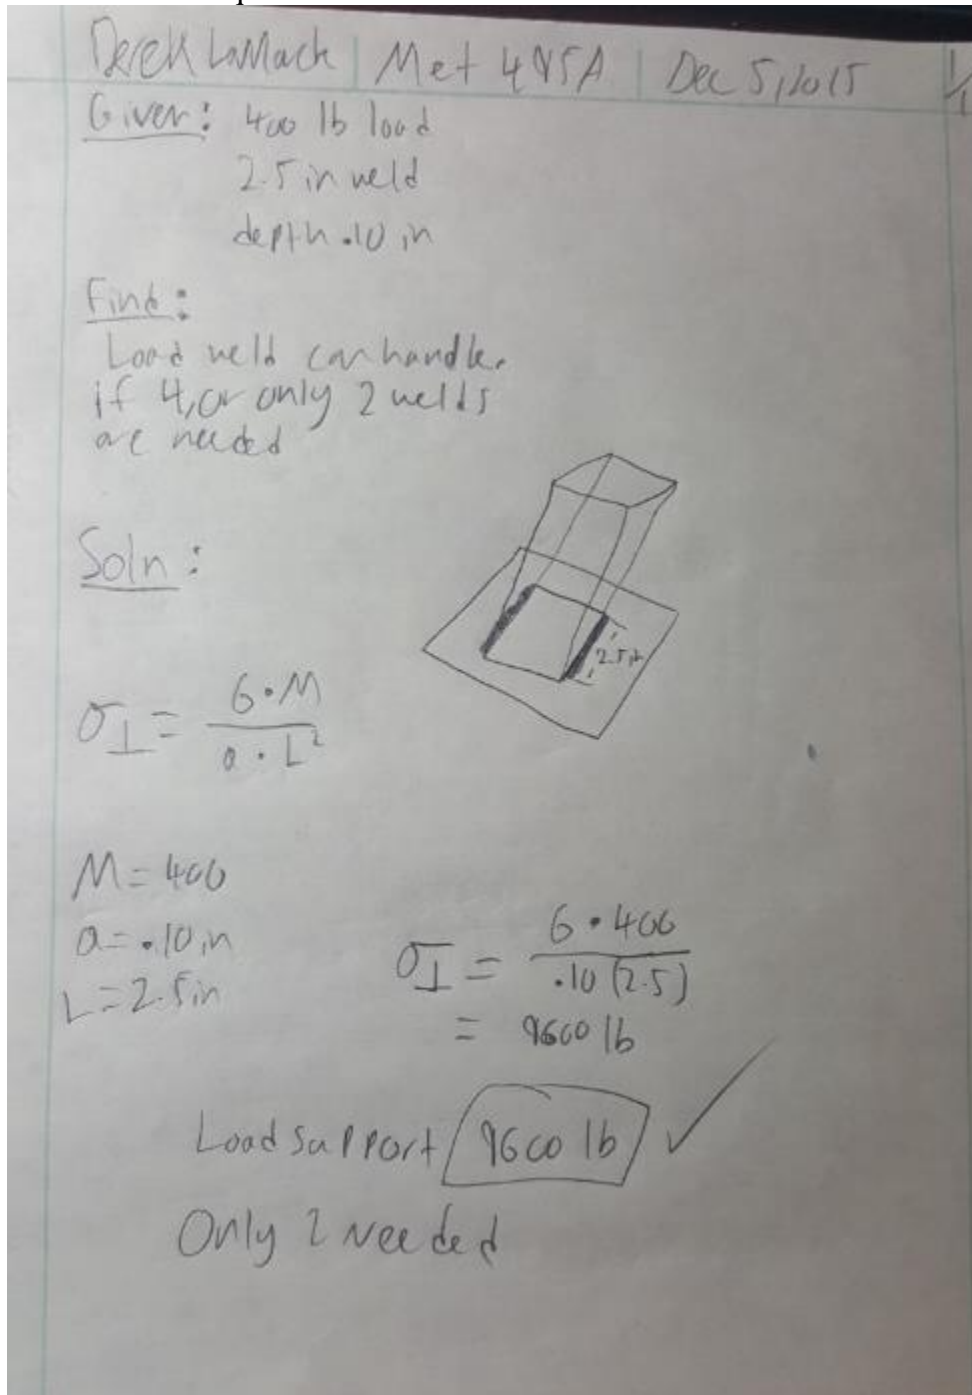 Derek LaMack | Met 495A | Dec 5, 2015 1/1
Given: 400 lb load
2.5 in weld
depth .10 in
Find:
Load weld can handle.
if 4, or only 2 welds
are needed
Soln:
2.5 in
σ⊥ = 6·M / a·L²
M = 400
a = .10 in
L = 2.5 in
σ⊥ = 6·400 / .10 (2.5)
= 9600 lb
Load support 9600 lb ✓
Only 2 Needed